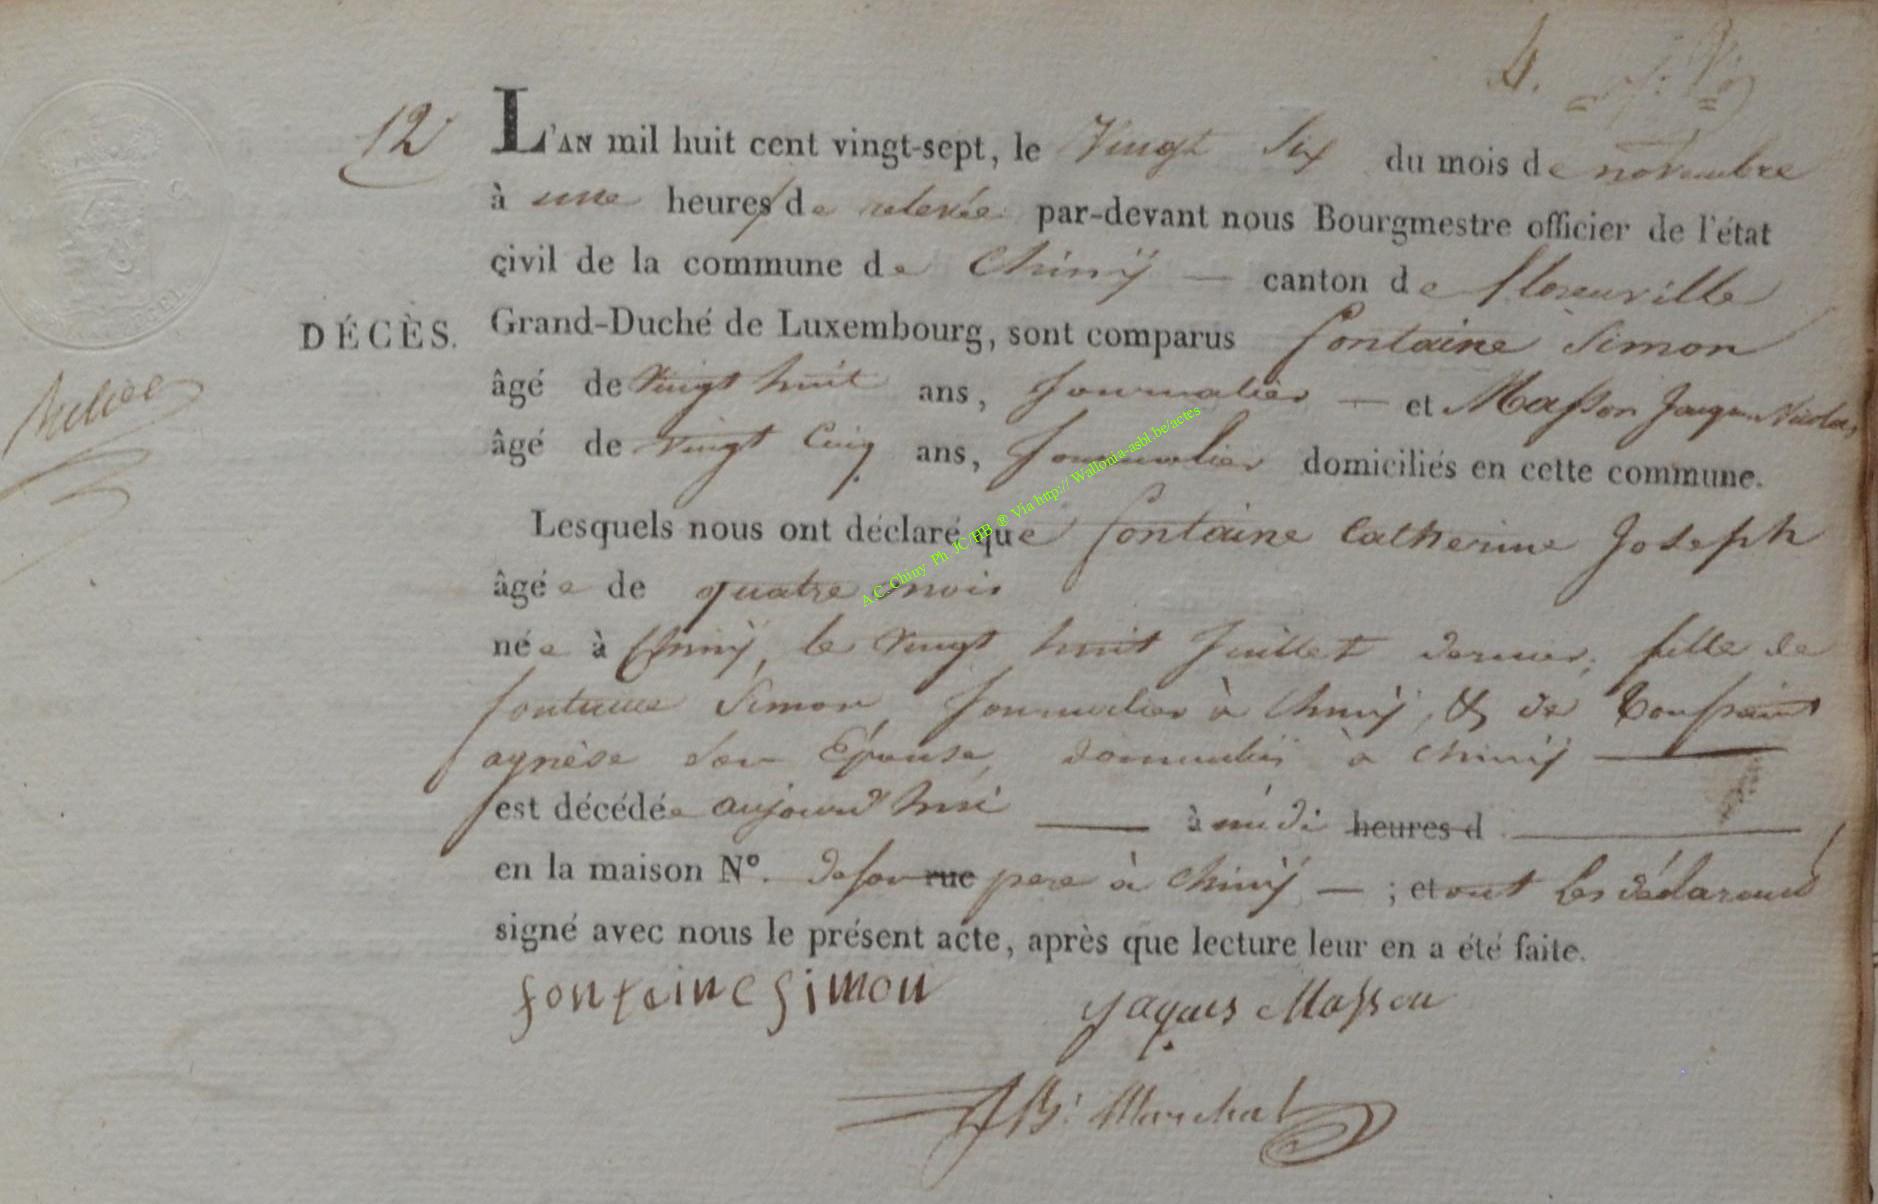 12
L'AN mil huit cent vingt-sept, le Vingt Six du mois de novembre
à une heures de relevée par-devant nous Bourgmestre officier de l'état
çivil de la commune de Chinÿ — canton de florenville
DÉCÈS. Grand-Duché de Luxembourg, sont comparus fontaine Simon
âgé de vingt huit ans, Journalier — et Masson Jacques Nicolas,
âgé de vingt Cinq ans, Journalier domiciliés en cette commune.
Lesquels nous ont déclaré que fontaine Catherine Joseph
âgée de quatre mois
née à Chinÿ, le vingt huit Juillet dernier, fille de
fontaine Simon, Journalier à Chinÿ, & de Toussaint
agnèse son Épouse, domiciliés à chinÿ
est décédée aujourd'hui à midi heures d
en la maison N°. de son rue pere à chinÿ — ; et ont les déclarants
signé avec nous le présent acte, après que lecture leur en a été faite.
fontaine Simon
Jaques Masson
Marchal
A.C. Chiny Ph JC/HB ® Via http:// Wallonia-asbl.be/actes